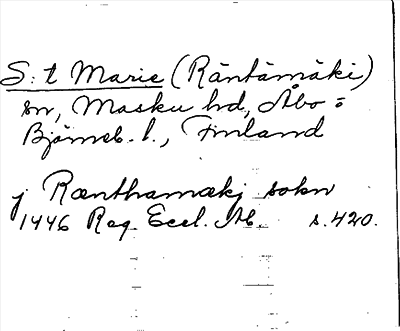 S:t Marie (Räntämäki)
sn, Masku hd, Åbo o
Björneb. l., Finland
j Rænthamækj sokn
1446 Reg Eccl. Ab. s. 420.